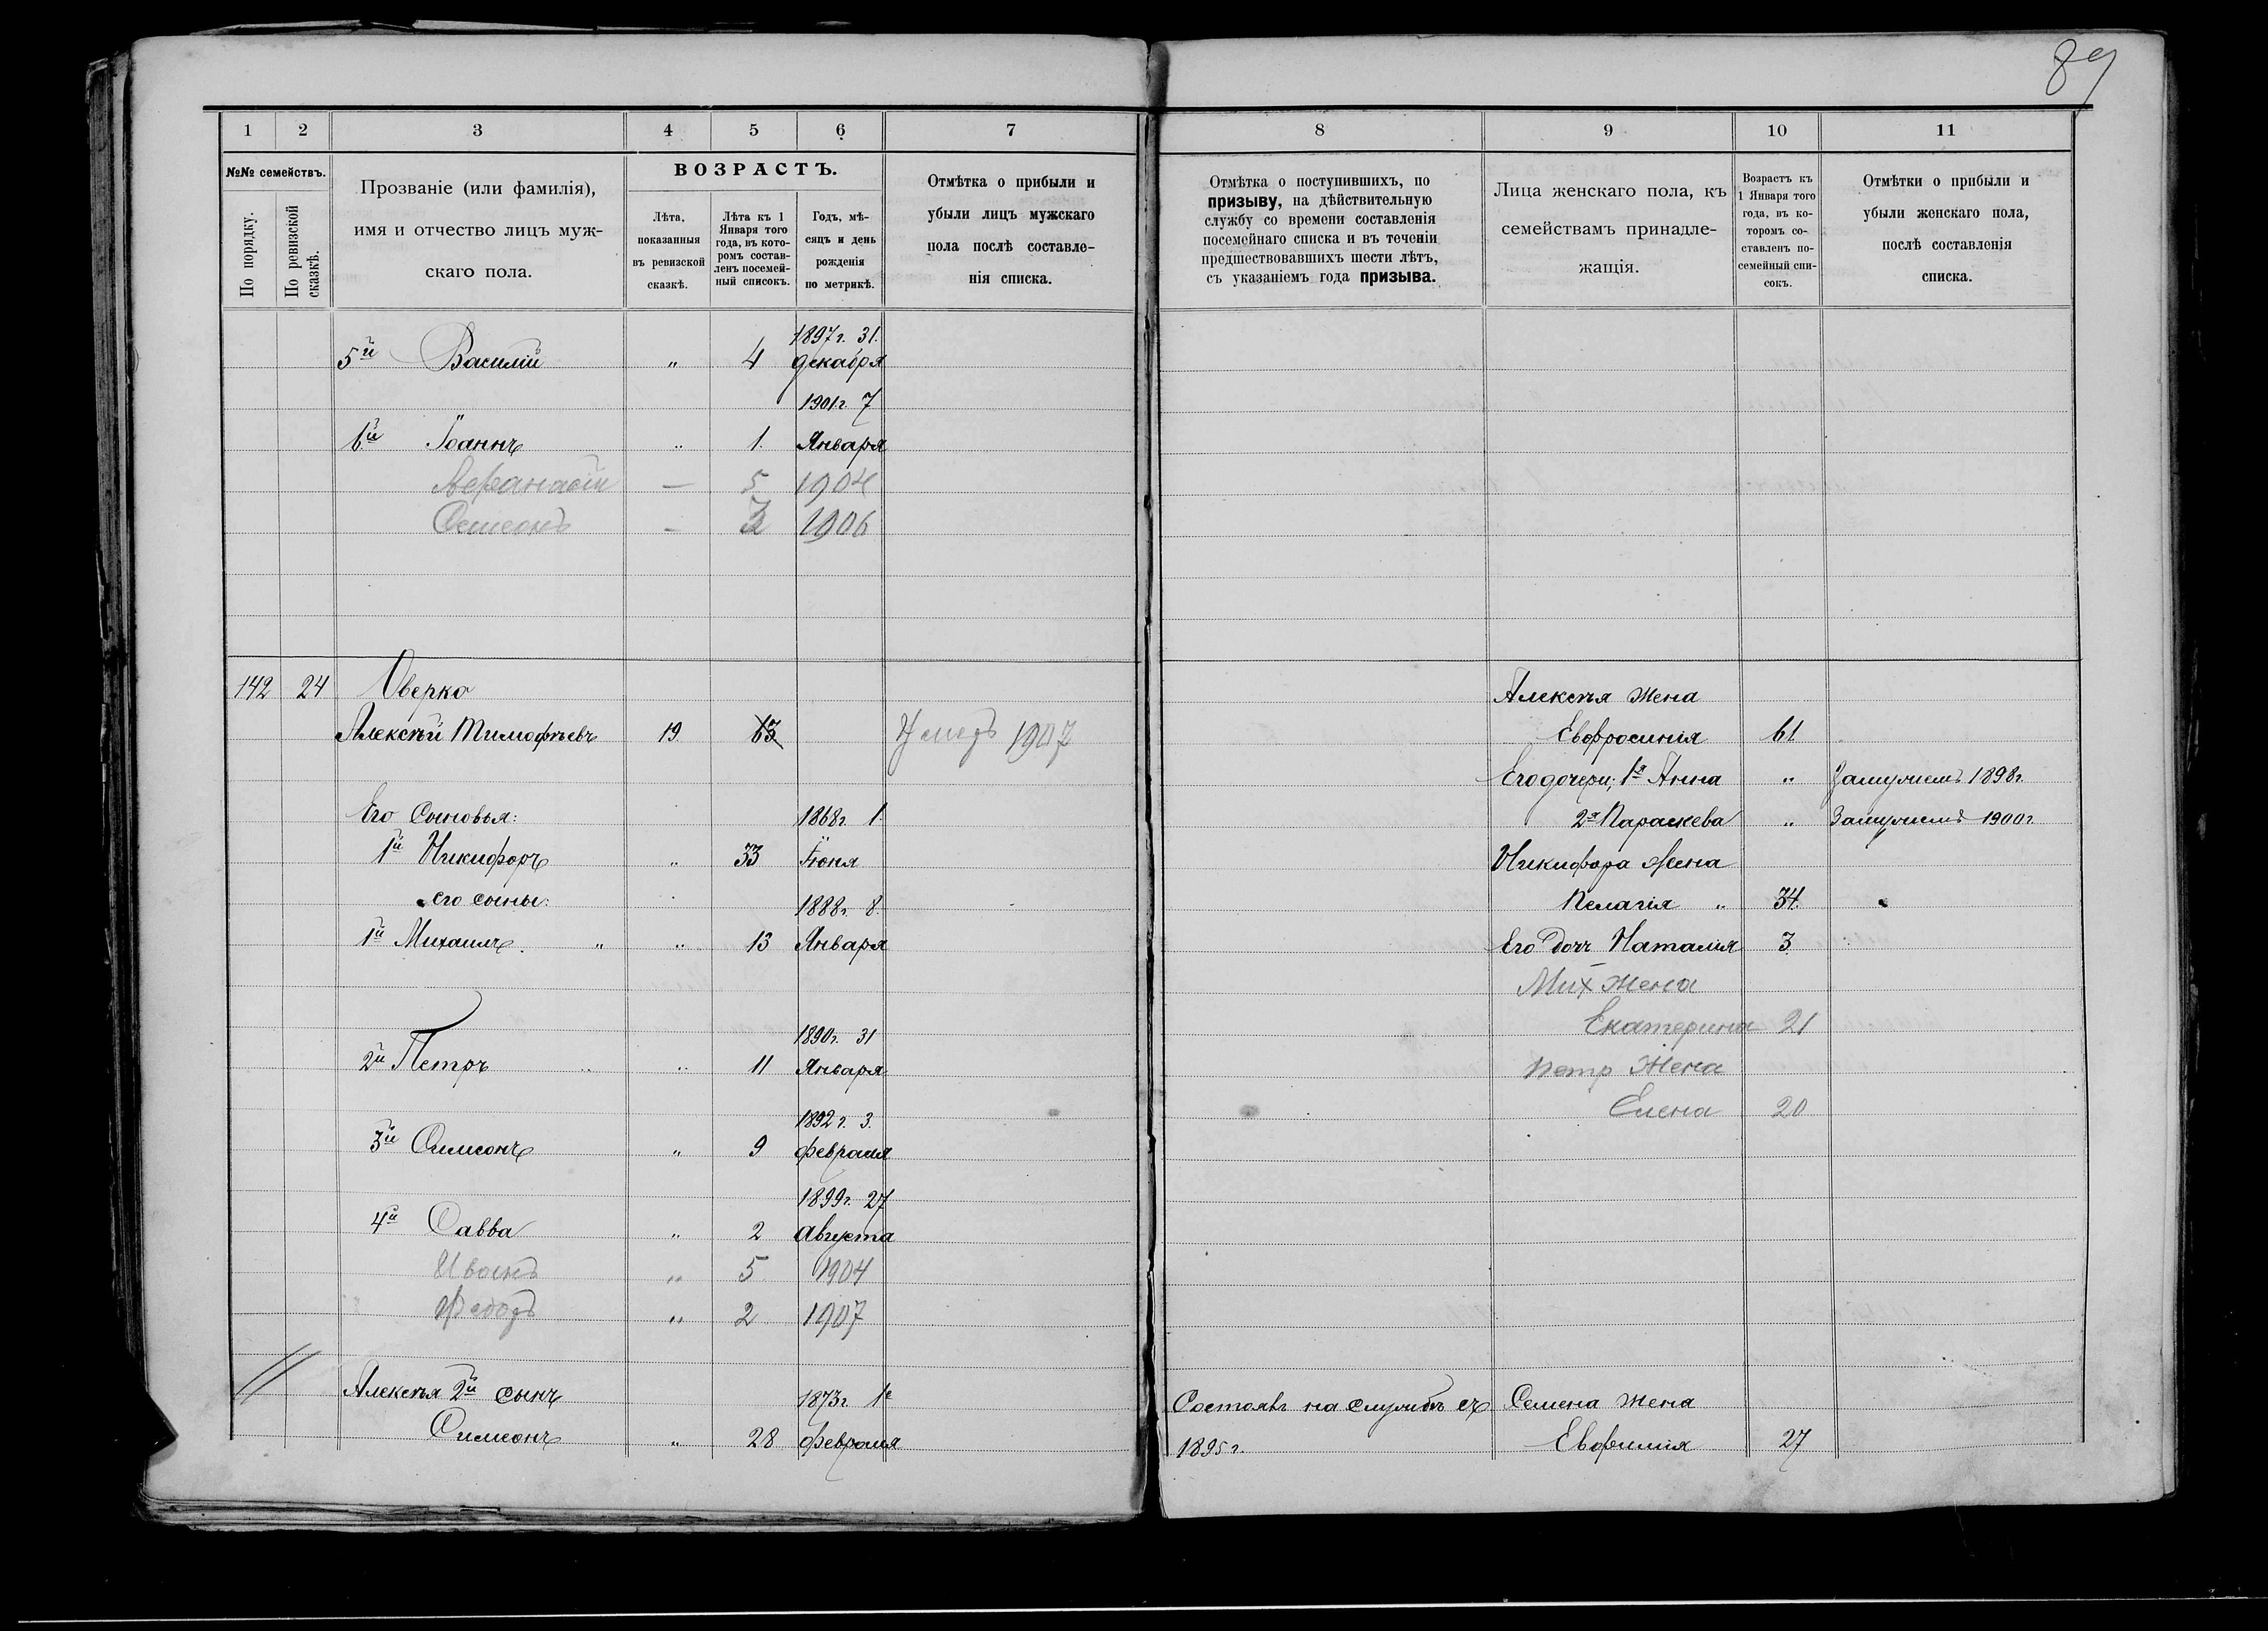 89
1 2 3 4 5 6 7
№№ семействъ.
По порядку.
По ревизской сказкѣ.
Прозваніе (или фамилія),
имя и отчество лицъ муж-
скаго пола.
ВОЗРАСТЪ.
Лѣта,
показанныя
въ ревизской
сказкѣ.
Лѣта къ 1
Января того
года, въ кото-
ромъ состав-
ленъ посемей-
ный списокъ.
Годъ, мѣ-
сяцъ и день
рожденія
по метрикѣ.
Отмѣтка о прибыли и
убыли лицъ мужскаго
пола послѣ составле-
нія списка.
1897г. 31.
5й Василій " 4 декабря
1901г. 7
6й Іоаннъ " 1. Января
Афанасій — 5 1904
Семеонъ — 1906
142 24 Оверко
Алексѣй Тимофѣевъ 19 63 Умеръ 1907
Его Сыновья: 1868г. 1.
1й Никифоръ " 33 Іюня
его сыны: 1888г. 8.
1й Михаилъ. " " 13 Января
1890г. 31
2й Петръ " " 11 Января
1892г. 3.
3й Симеонъ " 9 февраля
1899г. 27
4й Савва " 2 Августа
Иванъ " 5 1904
" 2 1907
Алексѣя 2й сынъ 1873г. 1е
Симеонъ " 28 февраля
8 9 10 11
Отмѣтка о поступившихъ, по
призыву, на дѣйствительную
службу со времени составленія
посемейнаго списка и въ теченіи
предшествовавшихъ шести лѣтъ,
съ указаніемъ года призыва.
Лица женскаго пола, къ
семействамъ принадле-
жащія.
Возрастъ къ
1 Января того
года, въ ко-
торомъ со-
ставленъ по-
семейный спи-
сокъ.
Отмѣтки о прибыли и
убыли женскаго пола,
послѣ составленія
списка.
Алексѣя жена
Евфросинія 61
Его дочери: 1я Анна " Замужемъ 1898г.
2я Параскева " Замужемъ 1900г.
Никифора Жена
Пелагія " 34.
Его дочь Наталія 3.
Мих жена
Екатерина 21
Петр Жена
Елена 20
Состоялъ на службѣ съ Семена жена
1895г. Евфимія 27